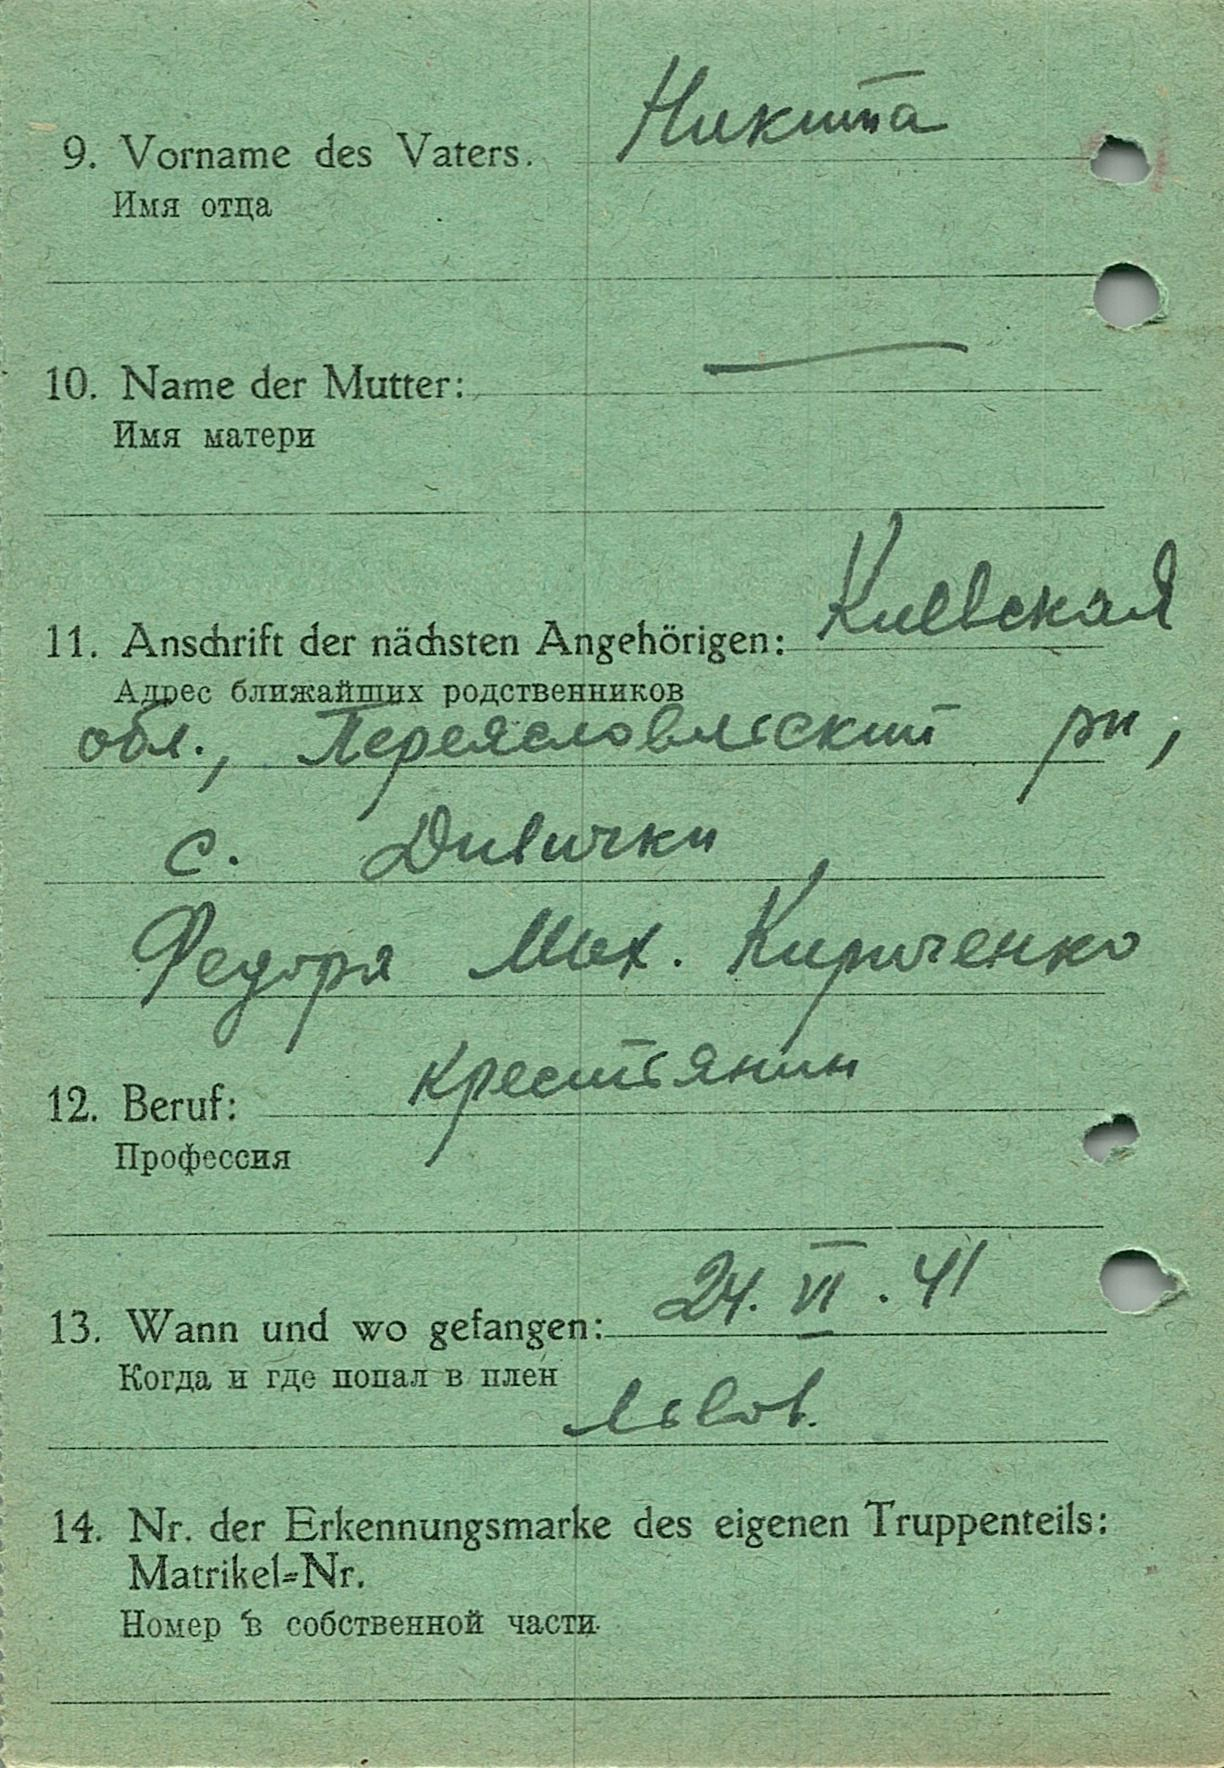 9. Vorname des Vaters. Никита
Имя отца
10. Name der Mutter: —
Имя матери
11. Anschrift der nächsten Angehörigen: Киевская
Адрес ближайших родственников
обл., Переясловльский рн,
с. Дивички
Федоря Мих. Кириченко
12. Beruf: крестьянин
Профессия
13. Wann und wo gefangen: 24. VI. 41
Когда и где попал в плен
Львов.
14. Nr. der Erkennungsmarke des eigenen Truppenteils:
Matrikel-Nr.
Номер в собственной части